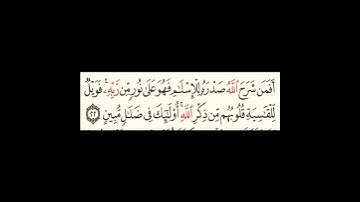 أَفَمَن شَرَحَ ٱللَّهُ صَدْرَهُۥ لِلْإِسْلَٰمِ فَهُوَ عَلَىٰ نُورٍ مِّن رَّبِّهِۦ ۚ فَوَيْلٌ
لِّلْقَٰسِيَةِ قُلُوبُهُم مِّن ذِكْرِ ٱللَّهِ ۚ أُو۟لَٰٓئِكَ فِى ضَلَٰلٍ مُّبِينٍ ٢٢